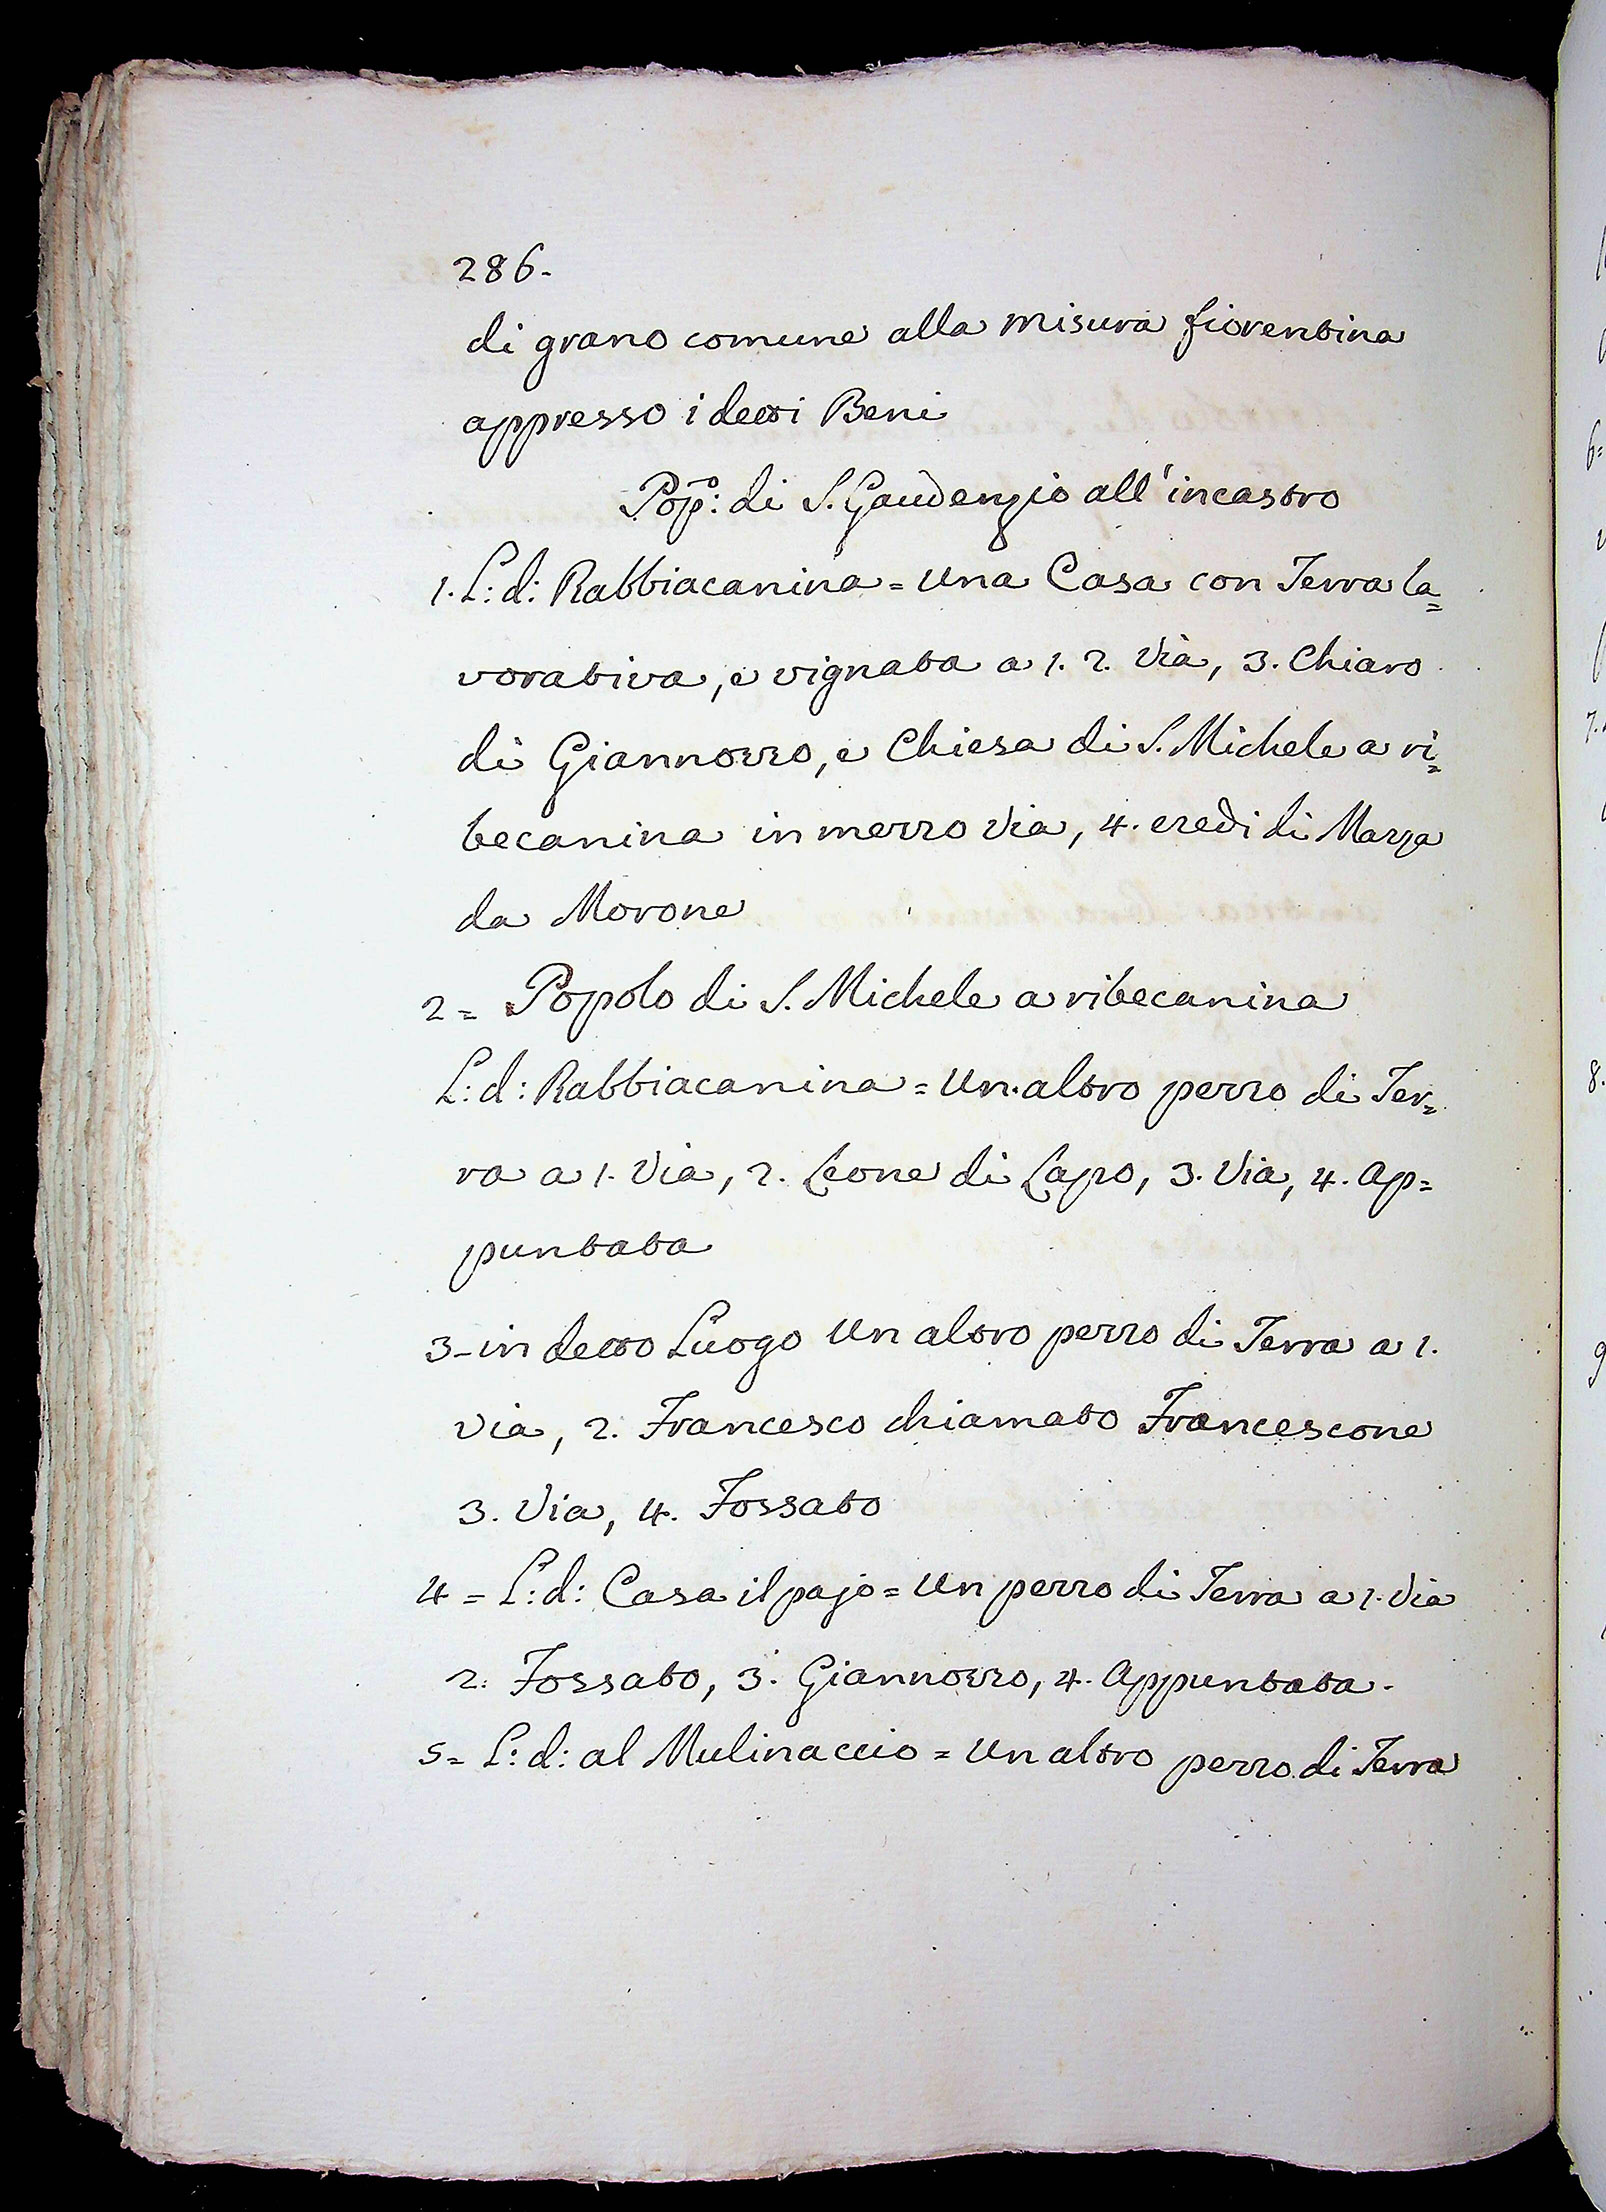 286.
di grano comune alla misura fiorentina
appresso i detti Beni
Popō: di S. Gaudenzio all'incastro
1. L: d: Rabbiacanina = una Casa con Terra la=
vorativa, e vignata a 1. 2. Via, 3. Chiaro
di Giannozzo, e Chiesa di S. Michele a ri=
becanina in mezzo Via, 4. eredi di Marza
da Morone
2 = Popolo di S. Michele a ribecanina
L: d: Rabbiacanina = Un altro pezzo di Ter=
ra a 1. Via, 2. Leone di Lapo, 3. Via, 4. Ap=
puntata
3 - in detto Luogo Un altro pezzo di Terra a 1.
Via, 2. Francesco chiamato Francescone
3. Via, 4. Fossato
4 = L: d: Casa il pajo = Un pezzo di Terra a 1. Via
2. Fossato, 3. Giannozzo, 4. Appuntata.
5 = L: d: al Mulinaccio = Un altro pezzo di Terra
6=
7.
8.
9